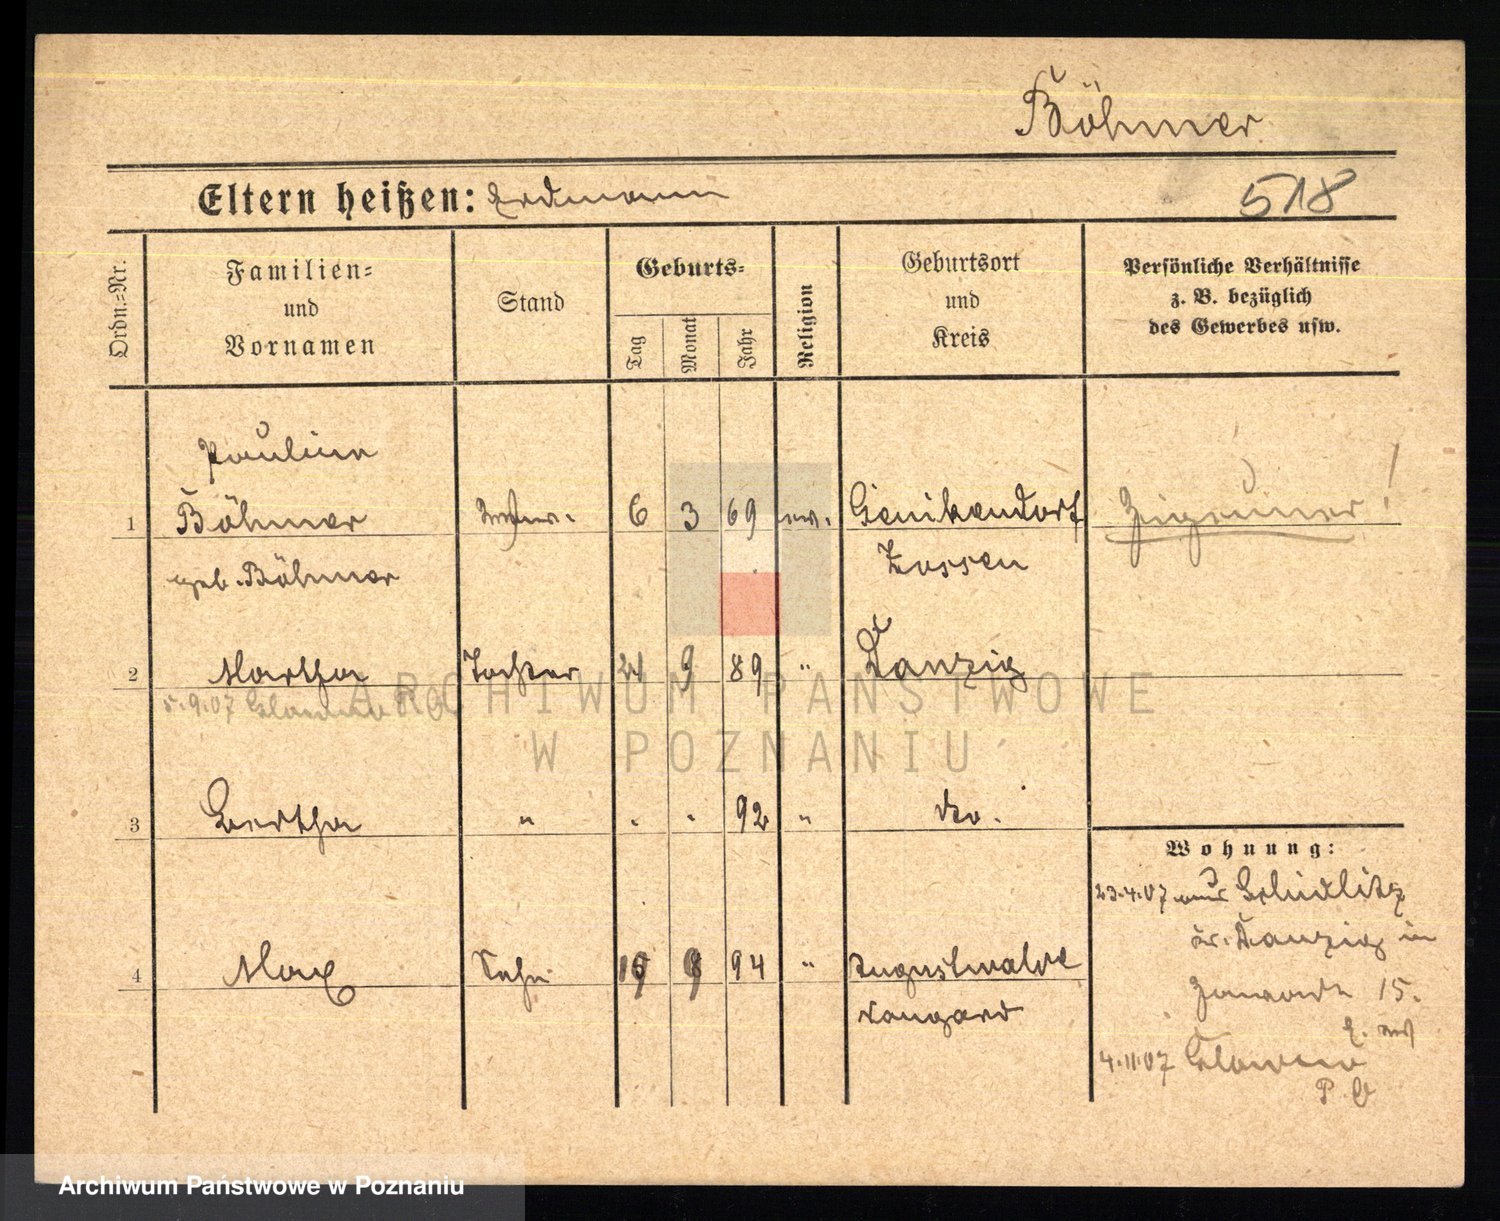 Böhmer
Eltern heißen: Erdmann
518
Ordn.=Nr.
Familien=
und
Vornamen
Stand
Geburts=
Tag
Monat
Jahr
Religion
Geburtsort
und
Kreis
Persönliche Verhältnisse
z. B. bezüglich
des Gewerbes usw.
Pauline
1 Böhmer 6 3 69 ev. Zigeuner!
geb. Böhmer Zossen
2 Martha Tochter 21 9 89 " Danzig
5.9.07
3 Bertha " " " 92 " do.
Wohnung:
23.4.07 aus Schidlitz
Kr. Danzig in
4 Max Sohn 9 94 " Augustwalde
15.
Naugard
4.11.07
ARCHIWUM PAŃSTWOWE
W POZNANIU
Archiwum Państwowe w Poznaniu